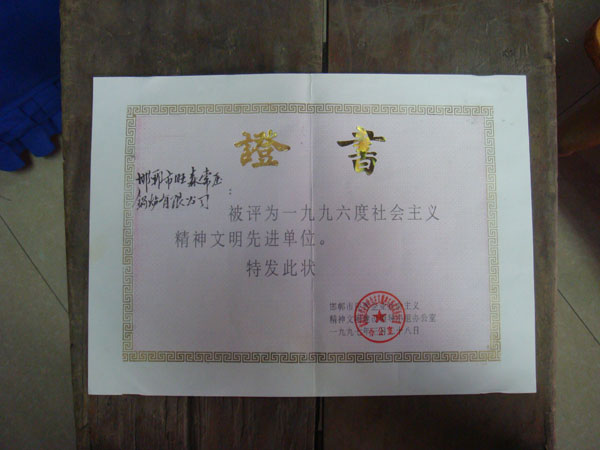 證書
邯郸市旺森常压
锅炉有限公司:
被评为一九九六度社会主义
精神文明先进单位。
特发此状
邯郸市 主义
精神文明建 办公室
一九九七年三月 十八日